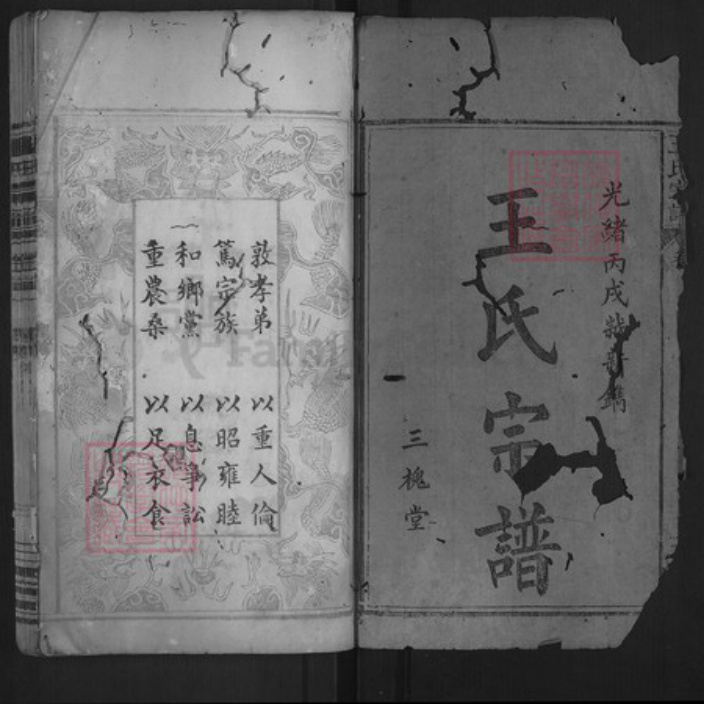 光緒丙戌歲新鐫
王氏宗譜
三槐堂
敦孝弟 以重人倫
篤宗族 以昭雍睦
和鄉黨 以息爭訟
重農桑 以足衣食